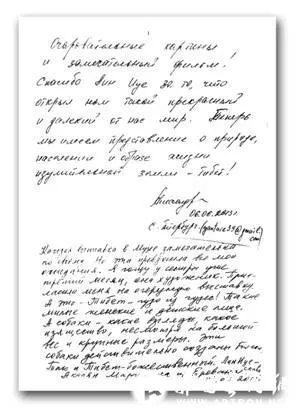 Очаровательные картины
и замечательный фильм!
Спасибо Яин за то, что
открыл нам такой прекрасный
и далёкий от нас мир. Теперь
мы имеем представление о природе,
населении и образе жизни
удивительной земли – Тибет!
С-Петербург
Каждая выставка в Музее замечательна
по-своему. Но эта превзошла все мои
ожидания. Я живу у сестры уже
третий месяц, она художник. Приг-
ласила меня на очередную выставку.
А это – Тибет – чудо из чудес! Такие
милые женские и детские лица.
А собаки – какие взгляды, какое
изящество, несмотря на большой
вес и крупные размеры. Эти
собаки действительно
Тибет – божественный.